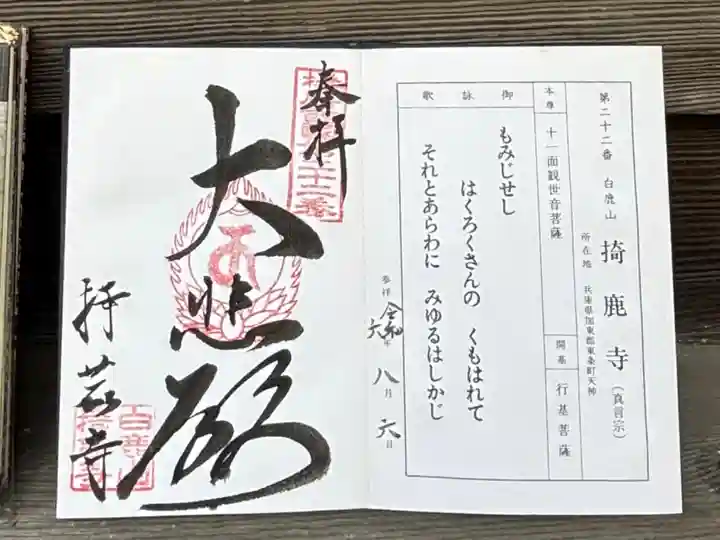 第二十二番 白鹿山 掎鹿寺(真言宗)
所在地 兵庫県加東郡東条町天神
本尊 十一面観世音菩薩
開基 行基菩薩
御詠歌
もみじせし
はくろくさんの くもはれて
それとあらわに みゆるはしかじ
参拝 令和六年 八月 六日
奉拝
大悲殿
掎鹿寺